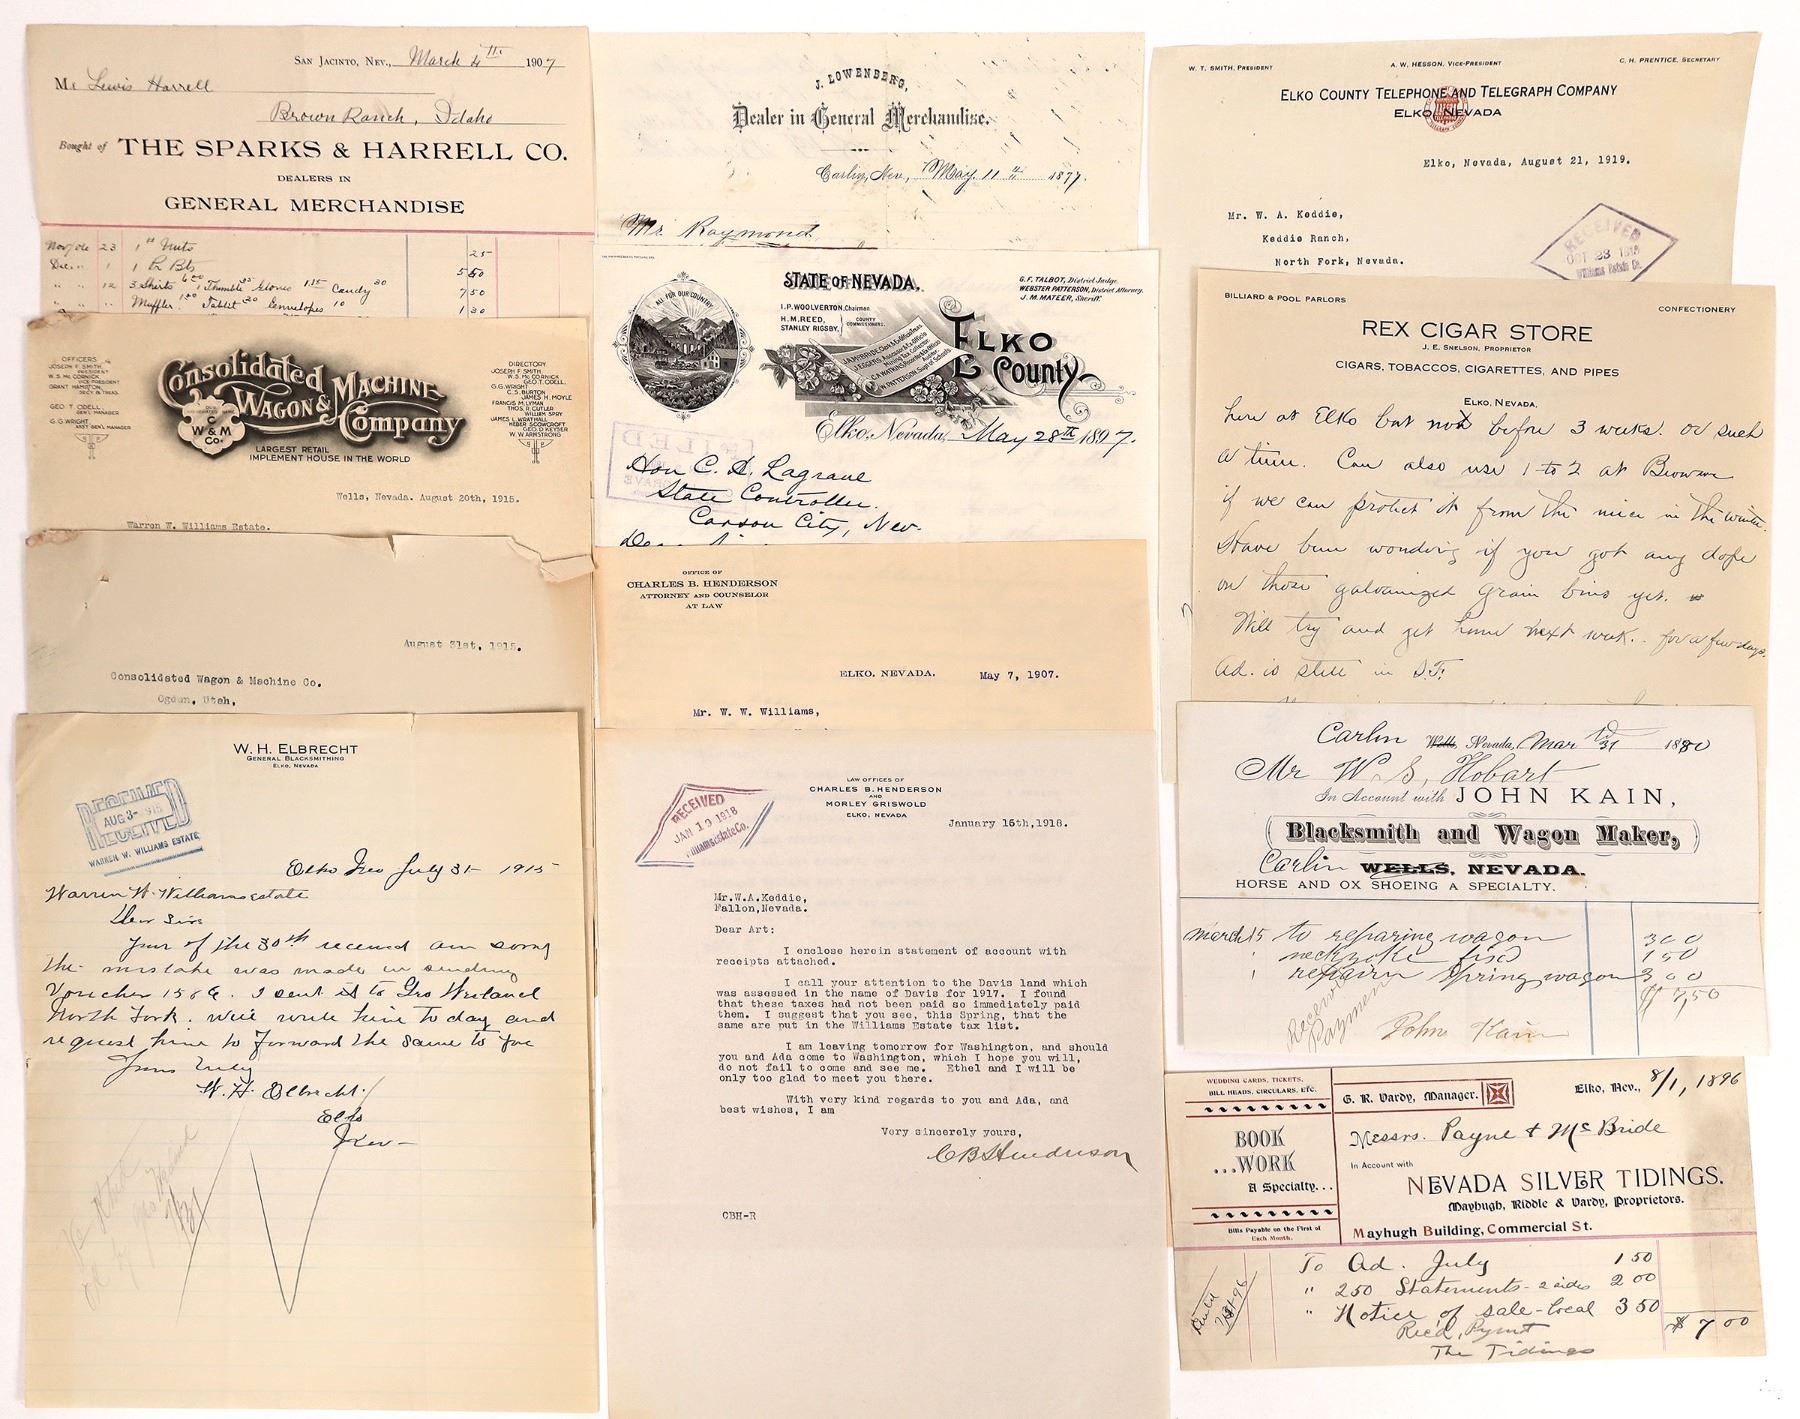 SAN JACINTO, NEV., March 4th 1907
Mr Lewis Harrell
Brown Ranch, Idaho
Bought of THE SPARKS & HARRELL CO.
DEALERS IN
GENERAL MERCHANDISE
Nov/06 23 1 Nuts 25
Dec 1 1 Pr Bts 5 50
" " 12 3 Shirts 6.00 1 Thumble 35 Gloves 1.15 Candy 30 7 50
" " " Muffler 1.00 Tablet 20 Envelopes 10 1 30
OFFICERS
JOSEPH F. SMITH,
PRESIDENT
W. S. McCORNICK,
VICE PRESIDENT
GRANT HAMPTON,
SEC'Y & TREAS.
GEO. T. ODELL,
GEN'L MANAGER
G. G. WRIGHT,
ASS'T GEN'L MANAGER
Consolidated
WAGON & MACHINE
Company
C W & M Co.
LARGEST RETAIL
IMPLEMENT HOUSE IN THE WORLD
DIRECTORY
JOSEPH F. SMITH,
W. S. McCORNICK
GEO. T. ODELL,
G. G. WRIGHT
C. S. BURTON
JAMES H. MOYLE
FRANCIS M. LYMAN
THOS. R. CUTLER
WILLIAM SPRY
JAMES L. WRATHALL
HEBER SCOWCROFT
GEO. D. KEYSER
W. W. ARMSTRONG
Wells, Nevada. August 20th, 1915.
Warren W. Williams Estate.
August 31st, 1915.
Consolidated Wagon & Machine Co.
Ogden, Utah,
W. H. ELBRECHT
GENERAL BLACKSMITHING
ELKO, NEVADA
RECEIVED
AUG 3- 915
RECEIVED
WARREN W. WILLIAMS ESTATE
Elko Nev July 31- 1915
Warren W. Williams Estate
Dear Sirs
Your of the 30th received am sorry
the mistake was made in sending
Voucher 1586. I sent it to Geo Weiland
North Fork. Will write him to day and
request him to forward the same to you
Yours truly
W. H. Elbrecht
Elko
Nev-
J. LOWENBERG,
Dealer in General Merchandise.
Carlin, Nev., May 11th 1877.
Mr. Raymond
STATE OF NEVADA.
I. P. WOOLVERTON, Chairman
H. M. REED,
STANLEY RIGSBY,
COUNTY
COMMISSIONERS.
G. F. TALBOT, District Judge.
WEBSTER PATTERSON, District Attorney.
J. M. MATEER, Sheriff.
ALL FOR OUR COUNTRY
ELKO
County
Elko, Nevada, May 28th 1897.
FILED
Hon C. A. Lagrave
State Controller.
Carson City, Nev.
Dear Sir
OFFICE OF
CHARLES B. HENDERSON
ATTORNEY AND COUNSELOR
AT LAW
ELKO, NEVADA. May 7, 1907.
Mr. W. W. Williams,
RECEIVED
JAN 19 1918
Williams Estate Co.
LAW OFFICES OF
CHARLES B. HENDERSON
AND
MORLEY GRISWOLD
ELKO, NEVADA
January 16th,1918.
Mr.W.A.Keddie,
Fallon,Nevada.
Dear Art:
I enclose herein statement of account with
receipts attached.
I call your attention to the Davis land which
was assessed in the name of Davis for 1917. I found
that these taxes had not been paid so immediately paid
them. I suggest that you see, this Spring, that the
same are put in the Williams Estate tax list.
I am leaving tomorrow for Washington, and should
you and Ada come to Washington, which I hope you will,
do not fail to come and see me. Ethel and I will be
only too glad to meet you there.
With very kind regards to you and Ada, and
best wishes, I am
Very sincerely yours,
CBHenderson
CBH-R
W. T. SMITH, PRESIDENT A. W. HESSON, VICE-PRESIDENT C. H. PRENTICE, SECRETARY
ELKO COUNTY TELEPHONE AND TELEGRAPH COMPANY
ELKO, NEVADA
Elko, Nevada, August 21, 1919.
Mr. W. A. Keddie,
Keddie Ranch,
North Fork, Nevada.
RECEIVED
OCT 23 1919
Williams Estate Co.
BILLIARD & POOL PARLORS CONFECTIONERY
REX CIGAR STORE
J. E. SNELSON, PROPRIETOR
CIGARS, TOBACCOS, CIGARETTES, AND PIPES
ELKO, NEVADA,
here at Elko but not before 3 weeks. or such
a time. Can also use 1 to 2 at Browson
if we can protect it from the mice in the winter.
Have been wondering if you got any dope
on those galvanized grain bins yet.
Will try and get home next week. for a few days.
Ad. is still in S.F.
Carlin Wells, Nevada, Mar 31 1880
Mr W. S, Hobart
In Account with JOHN KAIN,
Blacksmith and Wagon Maker,
Carlin WELLS, NEVADA.
HORSE AND OX SHOEING A SPECIALTY.
march 15 to reparing wagon 3 00
" neckyoke fixd 1 50
" repairn spring wagon 3 00
$ 7,50
Received Payment
John Kain
WEDDING CARDS, TICKETS,
BILL HEADS, CIRCULARS, ETC.
BOOK
...WORK
A Specialty...
Bills Payable on the First of
Each Month.
G. R. Vardy, Manager.
Elko, Nev., 8/1, 1896
Messrs. Payne & McBride
In Account with
NEVADA SILVER TIDINGS.
Mayhugh, Riddle & Vardy, Proprietors.
Mayhugh Building, Commercial St.
To Ad. July 1 50
" 250 Statements - 2 sides 2 00
" Notice of sale - Local 3 50
$ 7 00
Rec'd, Pymt
The Tidings